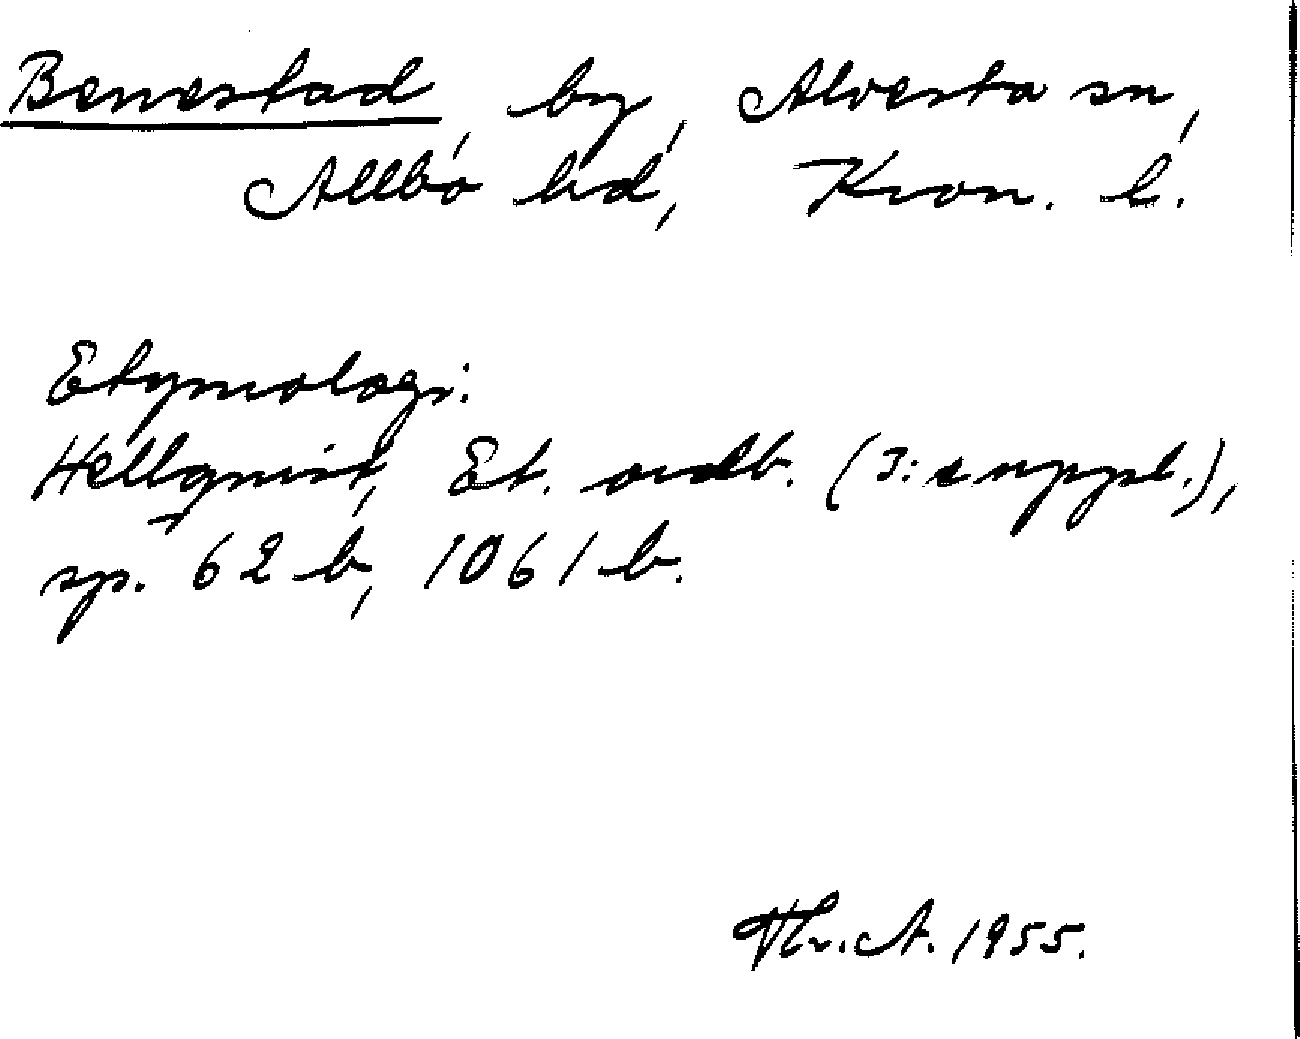 Benestad, by, Alvesta sn,
Allbo hd, Kron. l.
Etymologi:
Hellquist, Et. ordb. (I: suppl.),
sp. 62 b, 1061 b.
Thr. A. 1955.